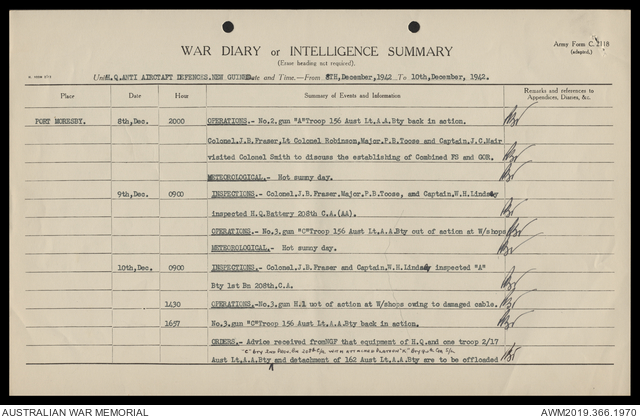 WAR DIARY or INTELLIGENCE SUMMARY
(Erase heading not required).
Army Form C. 2118
(adapted.)
Unit H.Q.ANTI AIRCTAFT DEFENCES.NEW GUINEA Date and Time.—From 8TH,December,1942 To 10th,December, 1942.
Place Date Hour Summary of Events and Information Remarks and references to
Appendices, Diaries, &c.
PORT MORESBY. 8th,Dec. 2000 OPERATIONS.- No.2.gun "A"Troop 156 Aust Lt.A.A.Bty back in action.
Colonel.J.B.Fraser,Lt Colonel Robinson,Major.P.B.Toose and Captain.J.C.Mair
visited Colonel Smith to discuss the establishing of Combined FS and GOR.
METEOROLOGICAL.- Hot sunny day.
9th,Dec. 0900 INSPECTIONS.- Colonel.J.B.Fraser.Major.P.B.Toose, and Captain.W.H.Lindsay
inspected H.Q.Battery 208th C.A.(AA).
OPERATIONS.- No.3.gun "C"Troop 156 Aust Lt.A.A.Bty out of action at W/shops
METEOROLOGICAL.- Hot sunny day.
10th,Dec. 0900 INSPECTIONS.- Colonel.J.B.Fraser and Captain.W.H.Lindsay inspected "A"
Bty 1st Bn 208th.C.A.
1430 OPERATIONS.-No.3.gun H.1 uot of action at W/shops owing to damaged cable.
1657 No.3.gun "C"Troop 156 Aust Lt.A.A.Bty back in action.
ORDERS.- Advice received fromNGF that equipment of H.Q.and one troop 2/17
"C" Bty 2nd Bn 208th C/A WITH ATTACHED PLATOON "A" Bty
Aust Lt.A.A.Bty and detachment of 162 Aust Lt.A.A.Bty are to be offloaded
AUSTRALIAN WAR MEMORIAL
AWM2019.366.1970